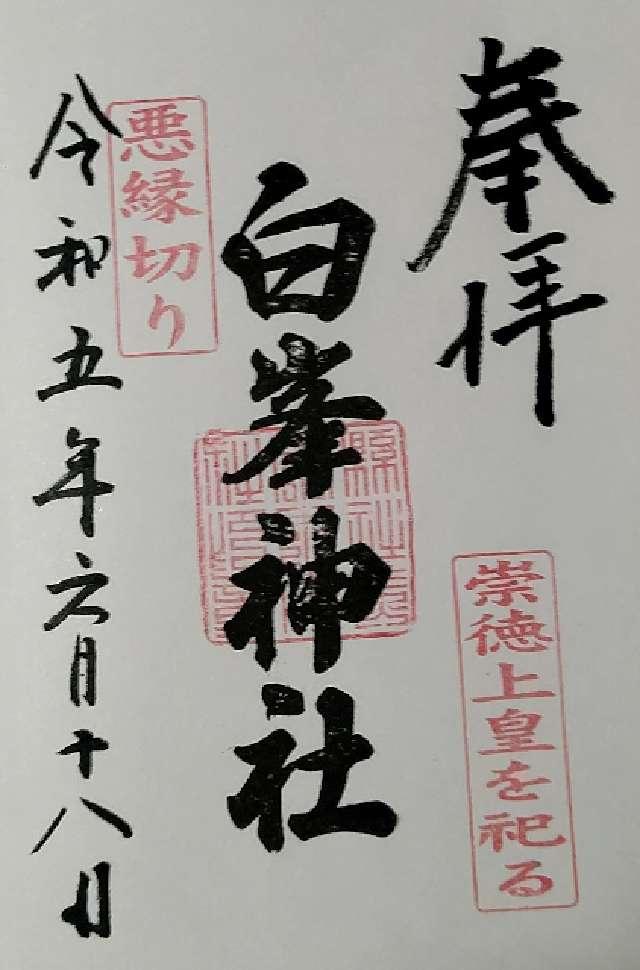 奉拝
崇徳上皇を祀る
白峯神社
悪縁切り
令和五年六月十八日